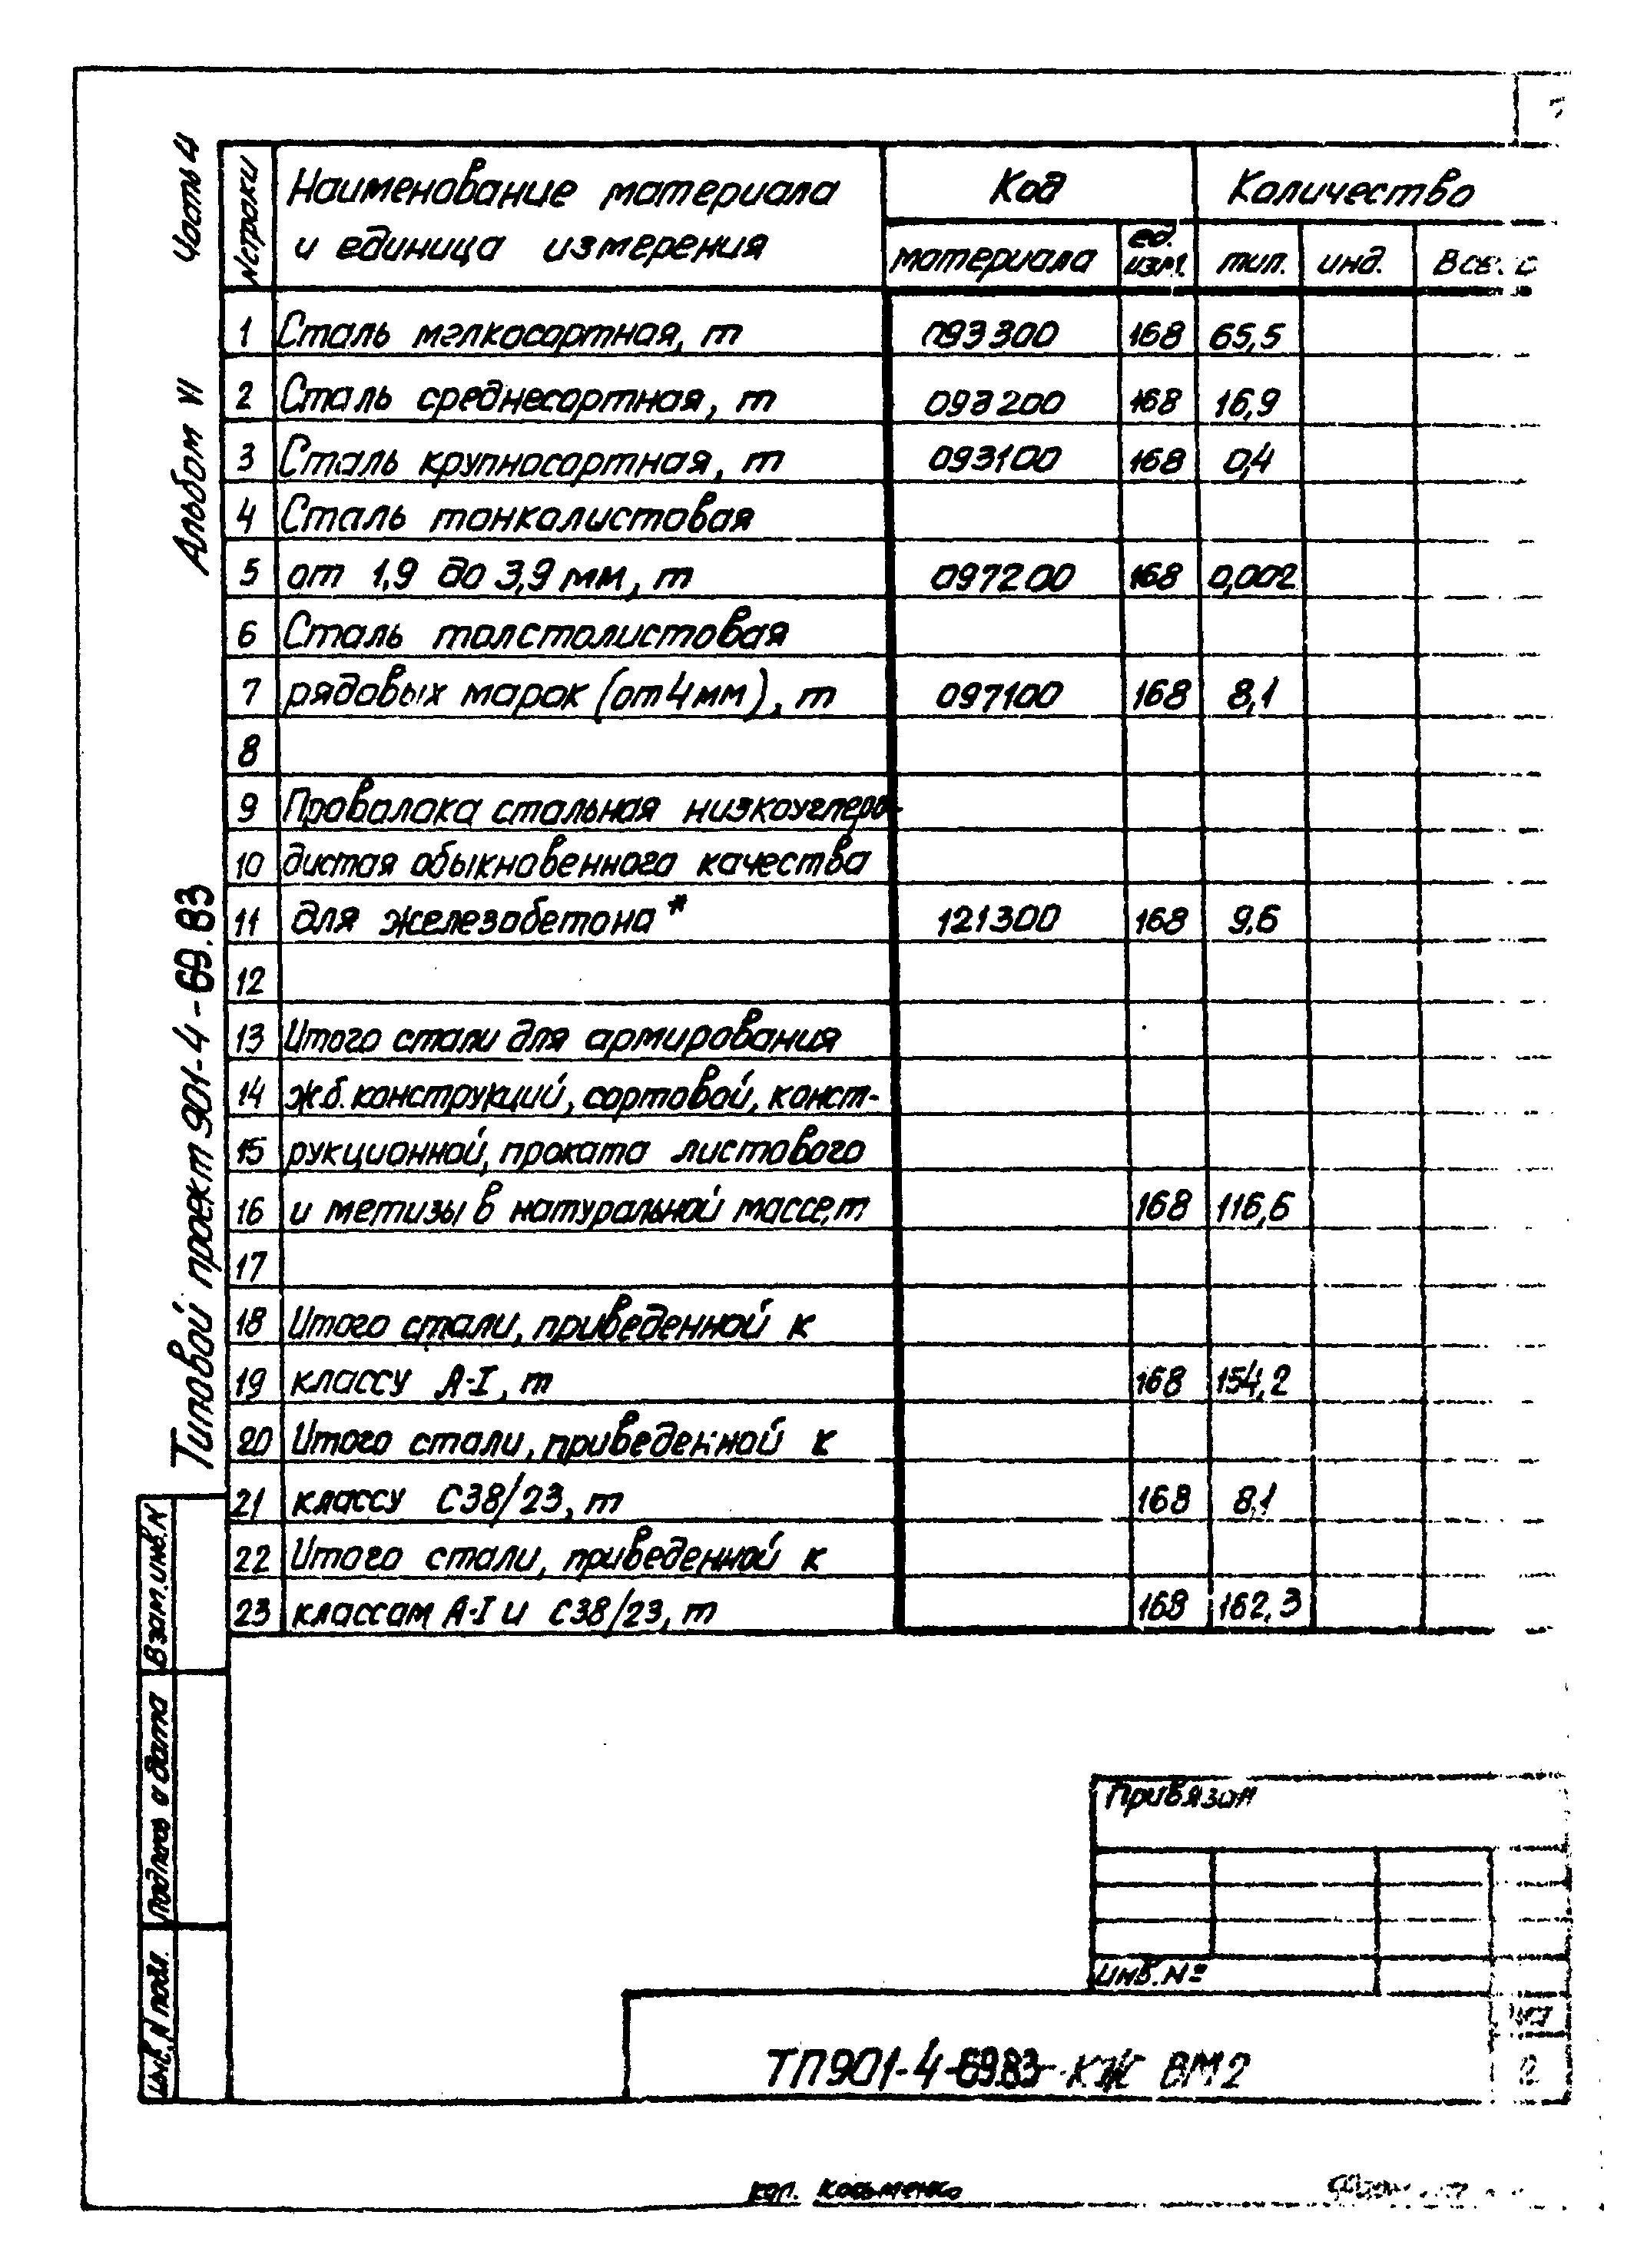 Часть 4
Альбом VI
Типовой проект 901-4-69.83
N строки Наименование материала и единица измерения Код Количество
материала ед. изм. тип. инд.
1 Сталь мелкосортная, т 093300 168 65,5
2 Сталь среднесортная, т 093200 168 16,9
3 Сталь крупносортная, т 093100 168 0,4
4 Сталь тонколистовая
5 от 1,9 до 3,9 мм, т 097200 168 0,002
6 Сталь толстолистовая
7 рядовых марок (от 4 мм), т 097100 168 8,1
8
9 Проволока стальная низкоуглеро-
10 дистая обыкновенного качества
11 для железобетона* 121300 168 9,6
12
13 Итого стали для армирования
14 ж.б. конструкций, сортовой, конст-
15 рукционной, проката листового
16 и метизы в натуральной массе, т 168 116,6
17
18 Итого стали, приведенной к
19 классу А-I, т 168 154,2
20 Итого стали, приведенной к
21 классу С38/23, т 168 8,1
22 Итого стали, приведенной к
23 классам А-I и С38/23, т 168 162,3
Взам. инв. N
Подпись и дата
Инв. N подл.
Привязан
Инв. №
ТП 901-4-69.83-КЖ ВМ2
2
кол. Козьменко